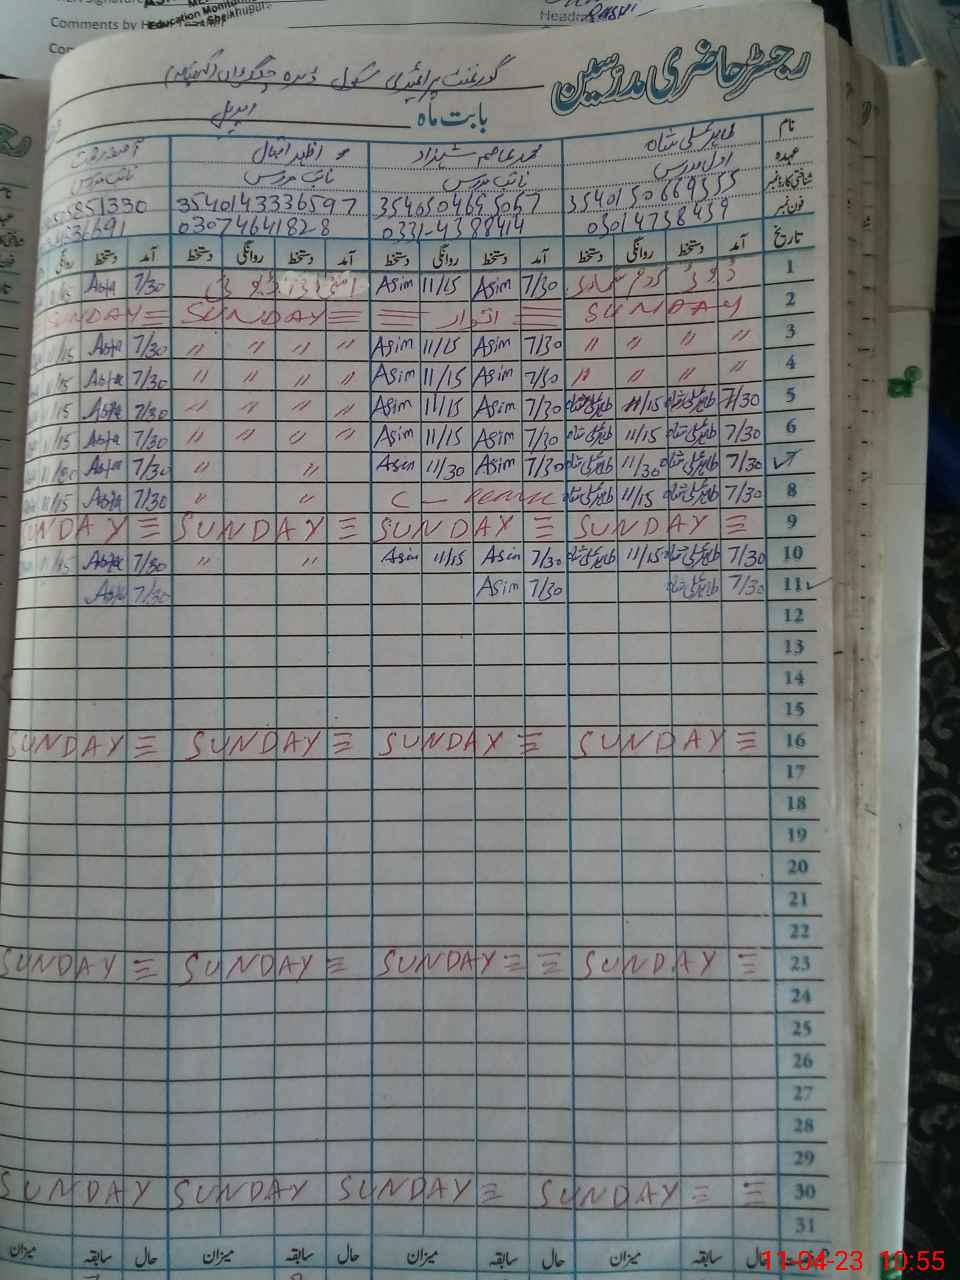 Comments by H
Headm
Education Monitoring
Sheikhupura
Com
رجسٹر حاضری مدرسین
گورنمنٹ پرائمری سکول ڈیرہ
بابت ماہ اپریل
نام طاہر علی شاہ محمد عاصم شہزاد اظہر اقبال
عہدہ اول مدرس نائب مدرس نائب مدرس نائب مدرس
شناختی کارڈ نمبر 3540150669555 3540504695067 3540143336597 851330
فون نمبر 03014738459 0331-4388414 03074641828
تاریخ آمد دستخط روانگی دستخط آمد دستخط روانگی دستخط آمد دستخط روانگی دستخط آمد دستخط روانگی
1 7/30 Asim 11/15 Asim 7/30 Asfa
2 SUNDAY اتوار SUNDAY SUNDAY
3 " " " " 7/30 Asim 11/15 Asim " " " " 7/30 Asfa 11/15
4 " " " " 7/30 Asim 11/15 Asim " " " " 7/30 Asfa 11/15
5 7/30 طاہر علی شاہ 11/15 طاہر علی شاہ 7/30 Asim 11/15 Asim " " " " 7/30 Asfa 11/15
6 7/30 طاہر علی شاہ 11/15 طاہر علی شاہ 7/30 Asim 11/15 Asim " " " " 7/30 Asfa 11/15
7 7/30 طاہر علی شاہ 11/30 طاہر علی شاہ 7/30 Asim 11/30 Asim " " 7/30 Asfa 11/30
8 7/30 طاہر علی شاہ 11/15 طاہر علی شاہ C - leave " " 7/30 Asfa 11/15
9 SUNDAY SUNDAY SUNDAY SUNDAY
10 7/30 طاہر علی شاہ 11/15 طاہر علی شاہ 7/30 Asim 11/15 Asim " " 7/30 Asfa 11/15
11 7/30 طاہر علی شاہ 7/30 Asim 7/30 Asfa
12
13
14
15
16 SUNDAY SUNDAY SUNDAY SUNDAY
17
18
19
20
21
22
23 SUNDAY SUNDAY SUNDAY SUNDAY
24
25
26
27
28
29
30 SUNDAY SUNDAY SUNDAY SUNDAY
31
حال سابقہ میزان حال سابقہ میزان حال سابقہ میزان حال سابقہ میزان
11-04-23 10:55